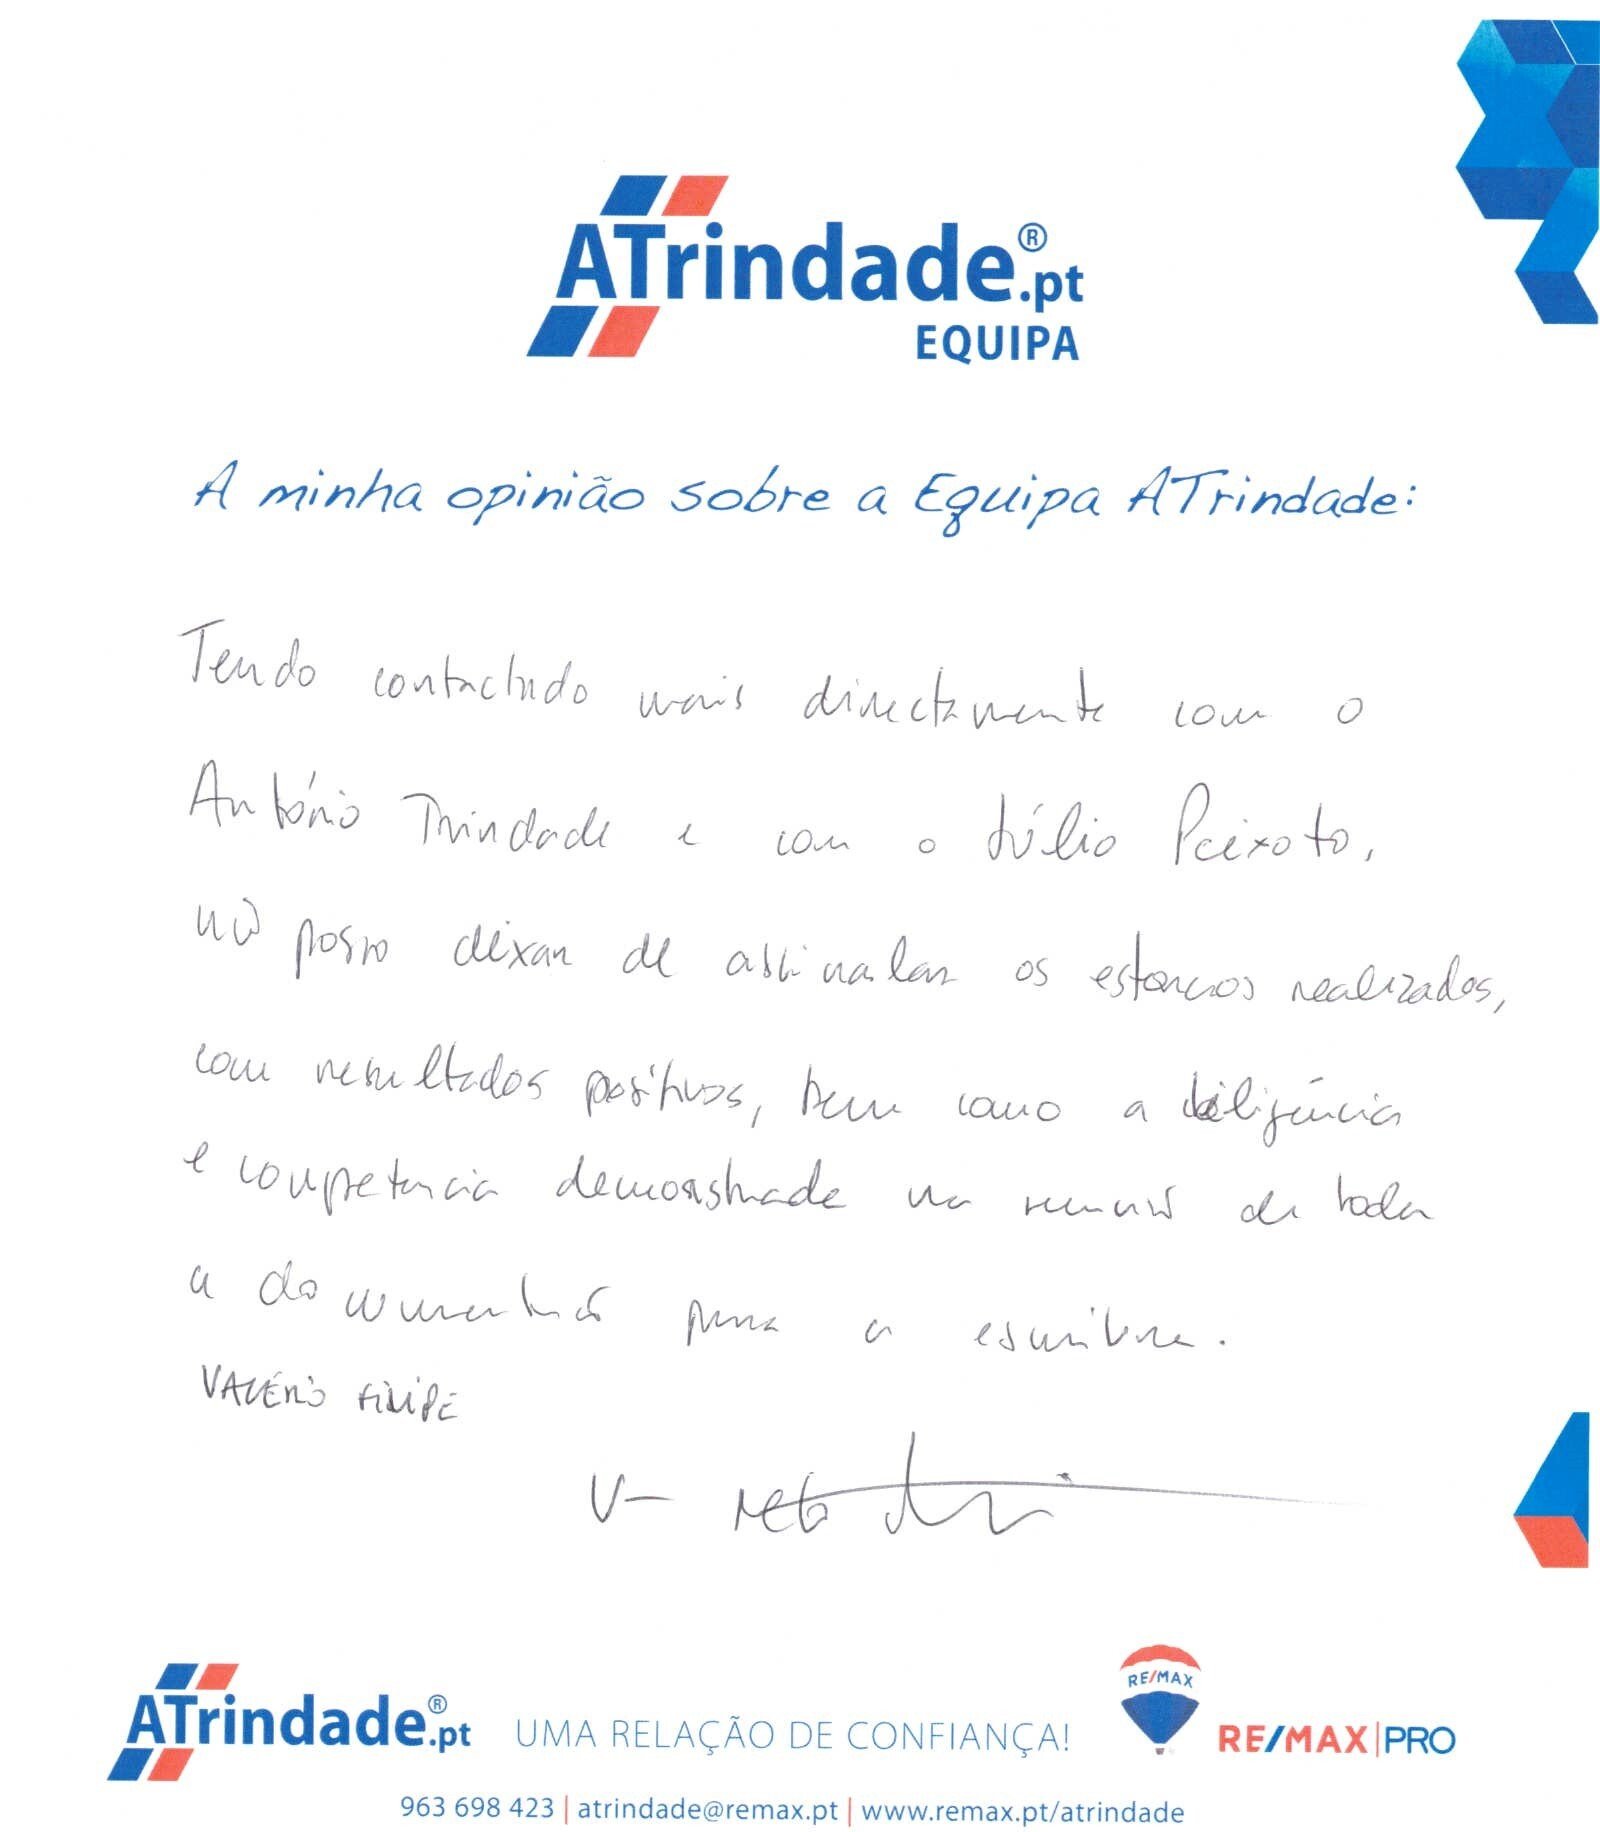 ATrindade®.pt
EQUIPA
A minha opinião sobre a Equipa ATrindade:
Tendo contactado mais directamente com o
António Trindade e com o Júlio Peixoto,
não posso deixar de assinalar os esforços realizados,
com resultados positivos, bem como a diligência
e competencia demonstrada na reunião de toda
a documentação para a escritura.
VALÉRIO FILIPE
ATrindade®.pt UMA RELAÇÃO DE CONFIANÇA! RE/MAX RE/MAX|PRO
963 698 423 | atrindade@remax.pt | www.remax.pt/atrindade